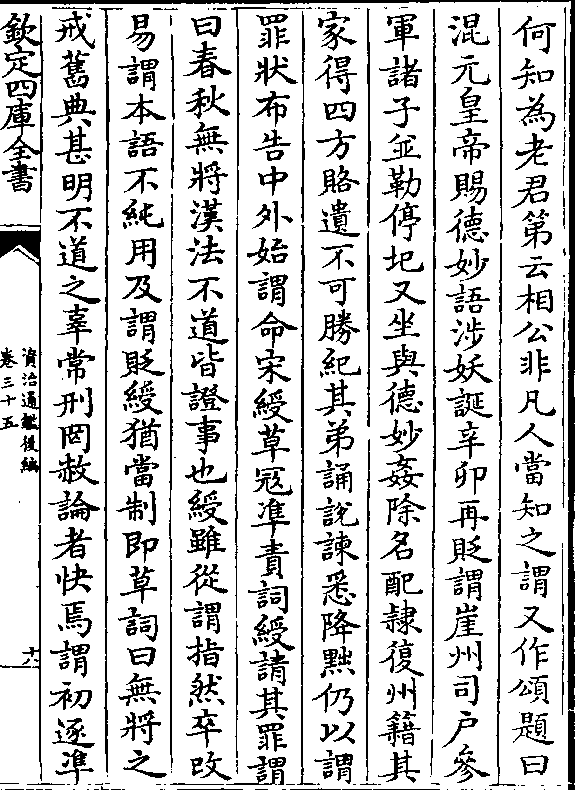 何知為老君第云相公非凡人當知之謂又作頌題曰
混元皇帝賜德妙語涉妖誕辛卯再貶謂崖州司户參
軍諸子並勒停𤣥又坐與德妙姦除名配隸復州籍其
家得四方賂遺不可勝紀其弟誦說諫悉降黜仍以謂
罪狀布告中外始謂命宋綬草宼準責詞綬請其罪謂
曰春秋無將漢法不道皆證事也綬雖從謂指然卒改
易謂本語不純用及謂貶綬猶當制即草詞曰無將之
戒舊典甚明不道之辜常刑罔赦論者快焉謂初逐準
欽定四庫全書
資治通鑑後編
卷三十五
十六